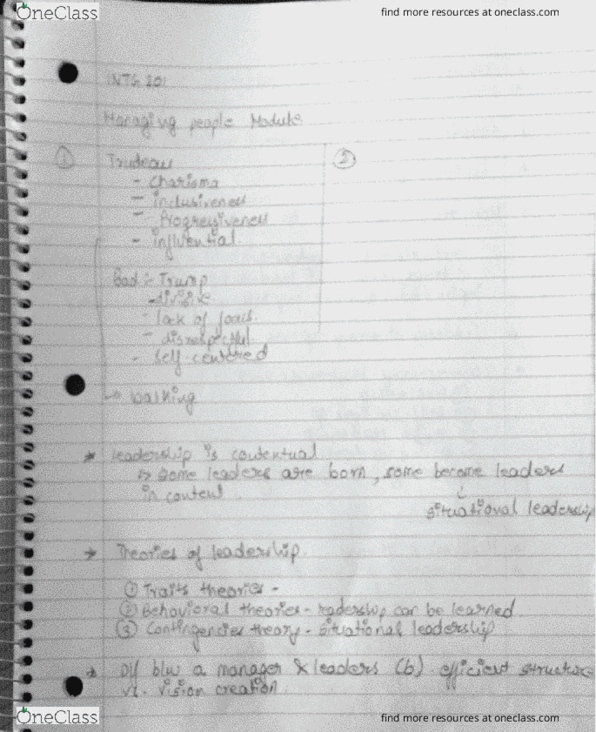 OneClass
find more resources at oneclass.com
INTG 201
Managing people Module
① Trudeau
②
- Charisma
- inclusiveness
- Progressiveness
- influential.
Bad : Trump
- divisive
- lack of focus.
- disrespectful
- self-centered
* Leadership is contextual
↳ Some leaders are born, some become leaders
in context
situational leadership
* Theories of leadership.
① Traits theories -
② Behavioral theories - leadership can be learned
③ Contingencies theory - situational leadership
* Diff b/w a manager & leaders (b) efficient structure
vs. vision creation.
OneClass
find more resources at oneclass.com